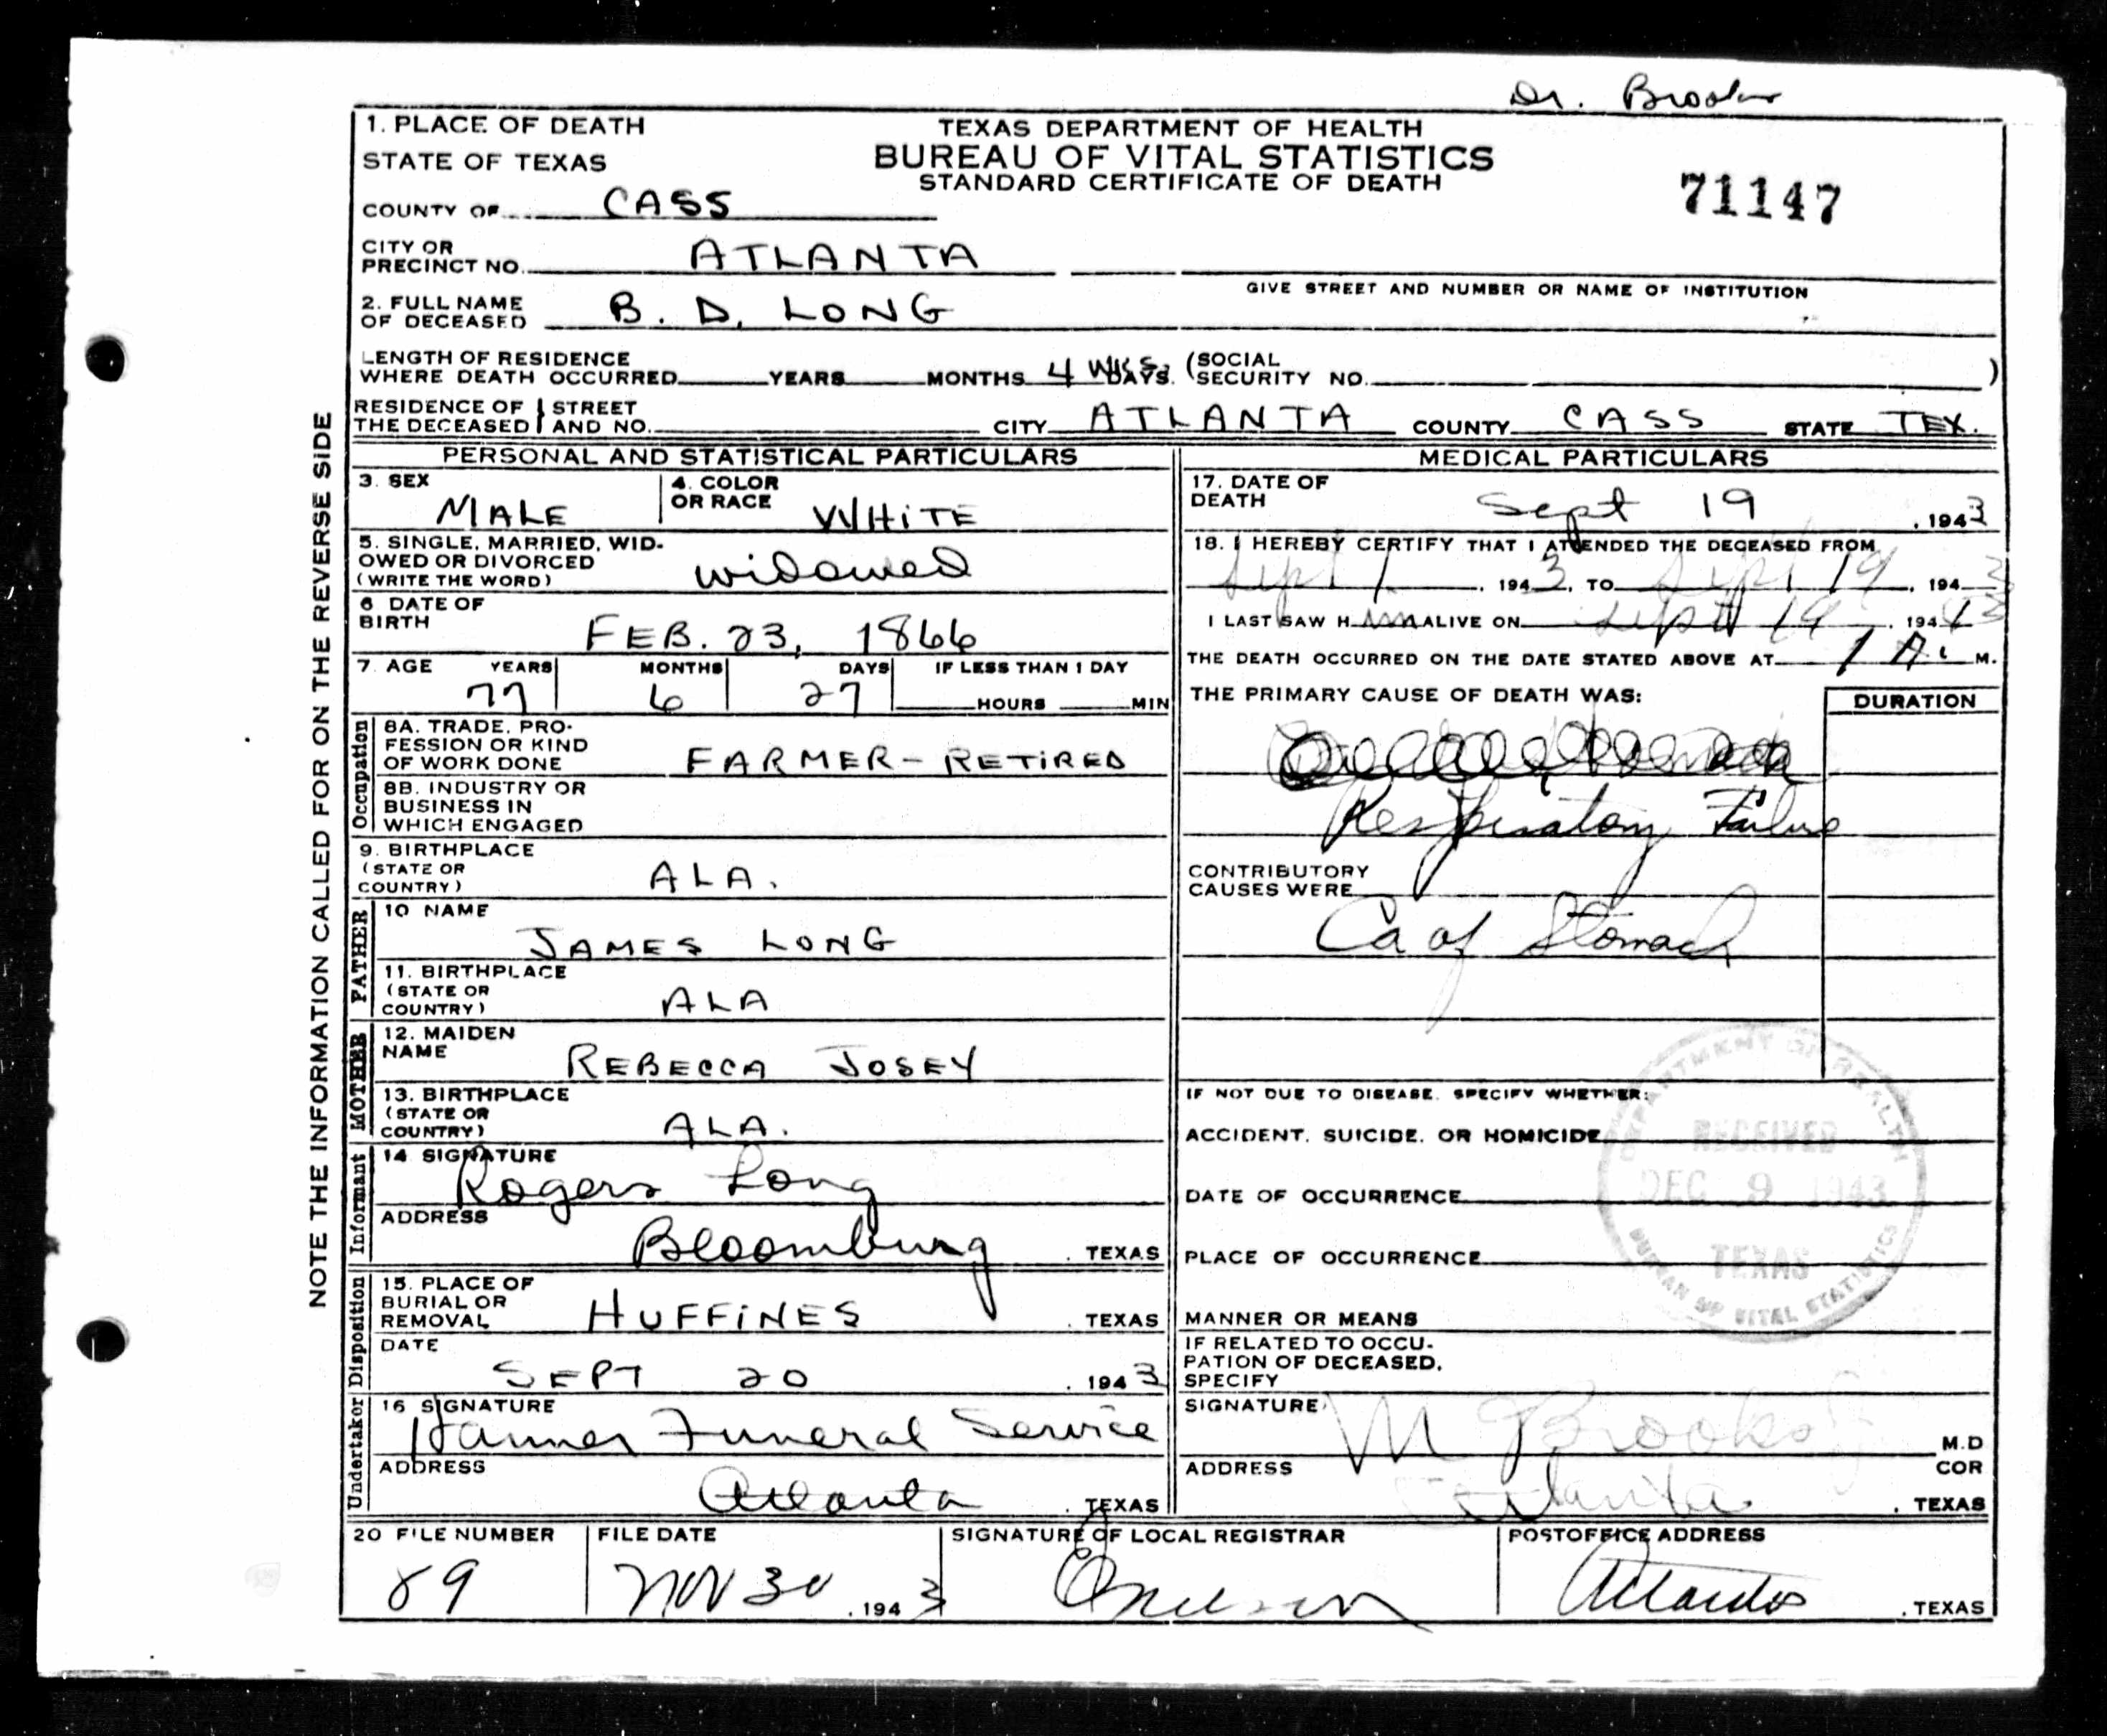 Dr. Brooks
1. PLACE OF DEATH
STATE OF TEXAS
TEXAS DEPARTMENT OF HEALTH
BUREAU OF VITAL STATISTICS
STANDARD CERTIFICATE OF DEATH
71147
COUNTY OF CASS
CITY OR PRECINCT NO. ATLANTA
GIVE STREET AND NUMBER OR NAME OF INSTITUTION
2. FULL NAME OF DECEASED B. D. LONG
LENGTH OF RESIDENCE
WHERE DEATH OCCURRED YEARS MONTHS 4 WKS. DAYS. (SOCIAL SECURITY NO. )
RESIDENCE OF THE DECEASED } STREET AND NO. CITY ATLANTA COUNTY CASS STATE TEX.
NOTE THE INFORMATION CALLED FOR ON THE REVERSE SIDE
PERSONAL AND STATISTICAL PARTICULARS
3. SEX MALE
4. COLOR OR RACE WHITE
5. SINGLE, MARRIED, WID-
OWED OR DIVORCED
(WRITE THE WORD) widowed
6 DATE OF BIRTH FEB. 23, 1866
7. AGE YEARS MONTHS DAYS IF LESS THAN 1 DAY
77 6 27 HOURS MIN
Occupation
8A. TRADE, PRO-
FESSION OR KIND
OF WORK DONE FARMER - RETIRED
8B. INDUSTRY OR
BUSINESS IN
WHICH ENGAGED
9. BIRTHPLACE
(STATE OR
COUNTRY) ALA.
FATHER
10 NAME JAMES LONG
11. BIRTHPLACE
(STATE OR
COUNTRY) ALA
MOTHER
12. MAIDEN NAME REBECCA JOSEY
13. BIRTHPLACE
(STATE OR
COUNTRY) ALA.
Informant
14 SIGNATURE Rogers Long
ADDRESS Bloomburg, TEXAS
Disposition
15. PLACE OF
BURIAL OR
REMOVAL HUFFINES, TEXAS
DATE SEPT 20, 1943
Undertaker
16 SIGNATURE Hanner Funeral Service
ADDRESS Atlanta, TEXAS
MEDICAL PARTICULARS
17. DATE OF DEATH Sept 19, 1943
18. I HEREBY CERTIFY THAT I ATTENDED THE DECEASED FROM
Sept 1, 1943, TO Sept 19, 1943
I LAST SAW HIM ALIVE ON Sept 19, 1943
THE DEATH OCCURRED ON THE DATE STATED ABOVE AT 1 A. M.
THE PRIMARY CAUSE OF DEATH WAS: DURATION
Respiratory Failure
CONTRIBUTORY
CAUSES WERE
Ca of Stomach
IF NOT DUE TO DISEASE, SPECIFY WHETHER:
ACCIDENT, SUICIDE, OR HOMICIDE
DATE OF OCCURRENCE
PLACE OF OCCURRENCE
MANNER OR MEANS
IF RELATED TO OCCU-
PATION OF DECEASED,
SPECIFY
DEPARTMENT OF HEALTH
RECEIVED
DEC 9 1943
TEXAS
BUREAU OF VITAL STATISTICS
SIGNATURE Brooks M.D
COR
ADDRESS Atlanta, TEXAS
20 FILE NUMBER FILE DATE SIGNATURE OF LOCAL REGISTRAR POSTOFFICE ADDRESS
89 Nov 30, 1943 Atlanta, TEXAS